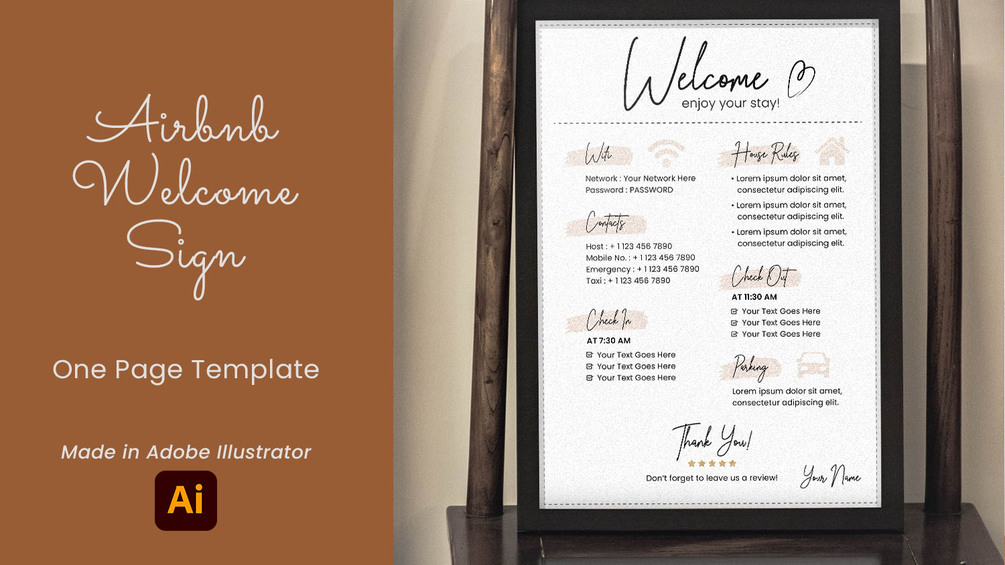 Airbnb
Welcome
Sign
One Page Template
Made in Adobe Illustrator
Ai
Welcome
enjoy your stay!
Wifi
Network : Your Network Here
Password : PASSWORD
Contacts
Host : + 1 123 456 7890
Mobile No. : + 1 123 456 7890
Emergency : + 1 123 456 7890
Taxi : + 1 123 456 7890
Check In
AT 7:30 AM
Your Text Goes Here
Your Text Goes Here
Your Text Goes Here
House Rules
• Lorem ipsum dolor sit amet,
consectetur adipiscing elit.
• Lorem ipsum dolor sit amet,
consectetur adipiscing elit.
• Lorem ipsum dolor sit amet,
consectetur adipiscing elit.
Check Out
AT 11:30 AM
Your Text Goes Here
Your Text Goes Here
Your Text Goes Here
Parking
Lorem ipsum dolor sit amet,
consectetur adipiscing elit.
Thank You!
Don't forget to leave us a review!
Your Name